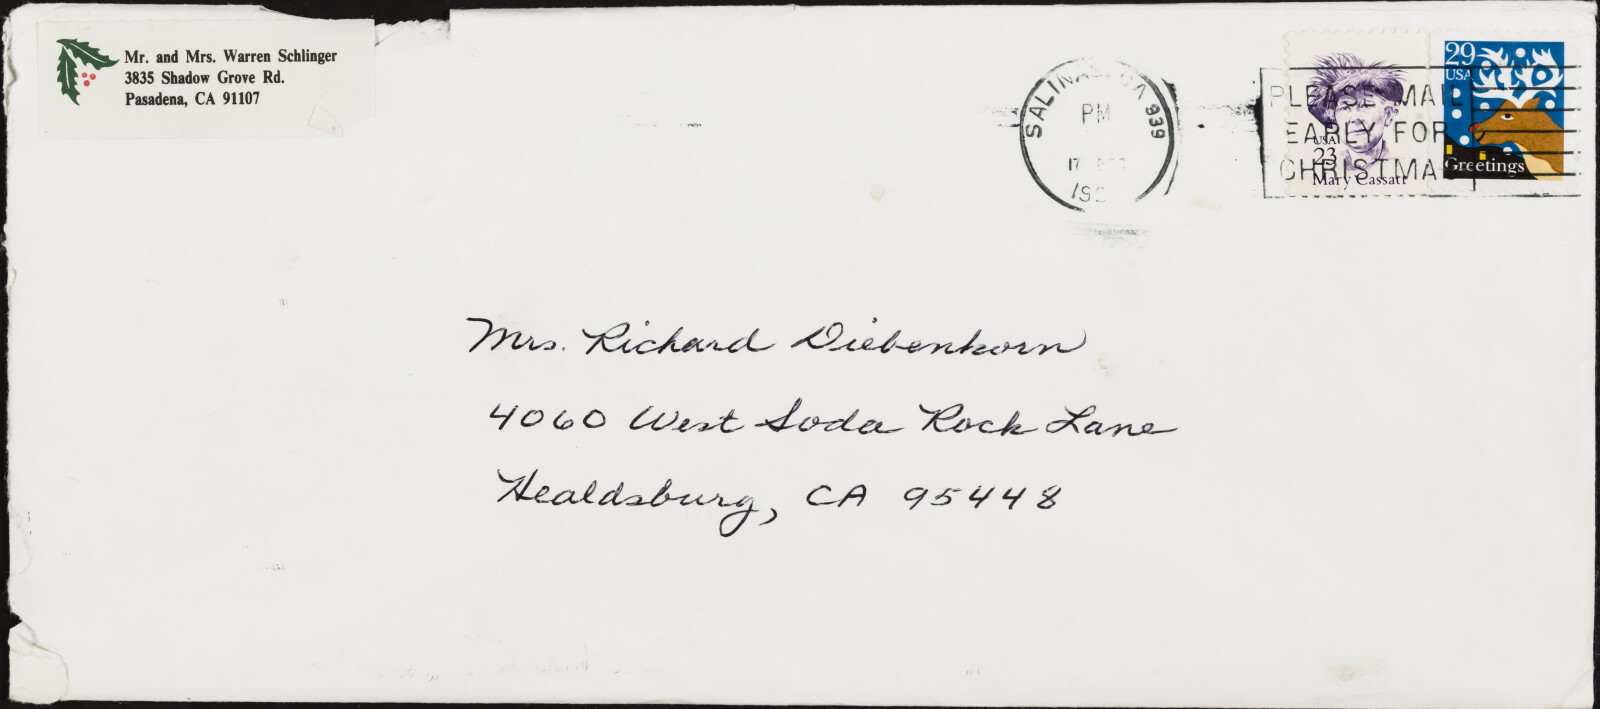 Mr. and Mrs. Warren Schlinger
3835 Shadow Grove Rd.
Pasadena, CA 91107
SALINAS, CA 939
PM
17 DEC
199
PLEASE MAIL
EARLY FOR
CHRISTMA
USA
23
Mary Cassatt
29
USA
Greetings
Mrs. Richard Diebenkorn
4060 West Soda Rock Lane
Healdsburg, CA 95448